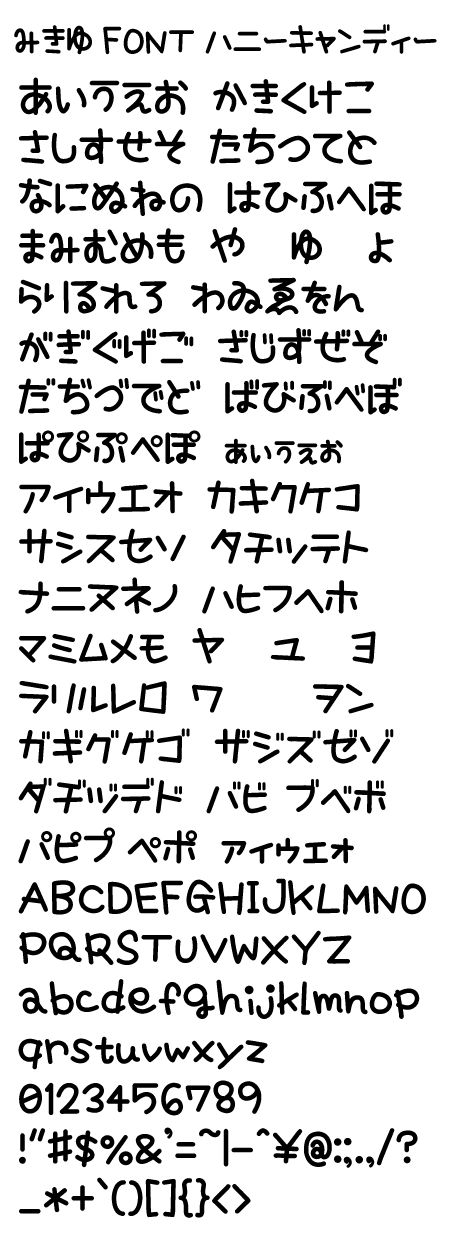 みきゆ FONT ハニーキャンディー
あいうえお かきくけこ
さしすせそ たちつてと
なにぬねの はひふへほ
まみむめも や ゆ よ
らりるれろ わゐゑをん
がぎぐげご ざじずぜぞ
だぢづでど ばびぶべぼ
ぱぴぷぺぽ ぁぃぅぇぉ
アイウエオ カキクケコ
サシスセソ タチツテト
ナニヌネノ ハヒフヘホ
マミムメモ ヤ ユ ヨ
ラリルレロ ワ ヲン
ガギグゲゴ ザジズゼゾ
ダヂヅデド バビ ブベボ
パピプ ペポ ァィゥェォ
ABCDEFGHIJKLMNO
PQRSTUVWXYZ
abcdefghijklmnop
qrstuvwxyz
0123456789
!"#$%&'=~|-^¥@:;.,/?
_*+`()[]{}<>